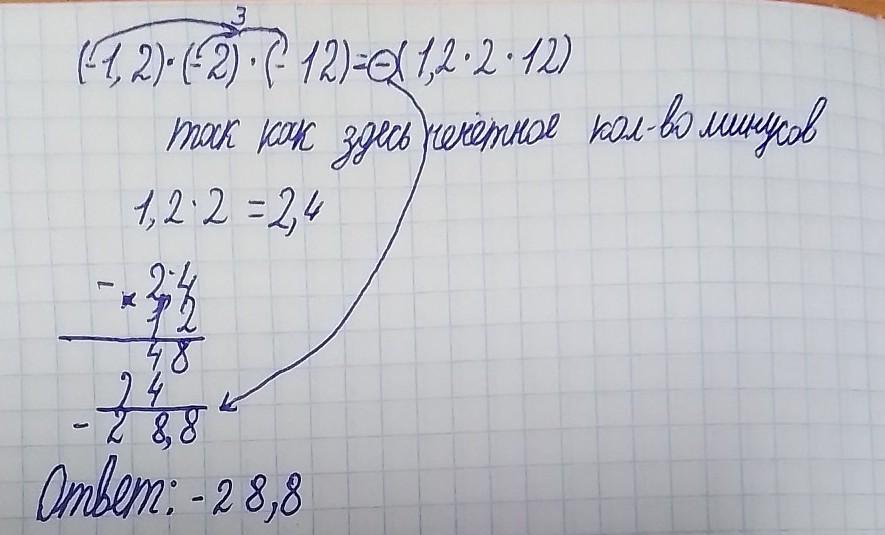 3
(-1,2)·(-2)·(-12)=-(1,2·2·12)
так как здесь нечетное кол-во минусов
1,2·2=2,4
- 2,4
× 12
48
24
-28,8
Ответ: -28,8